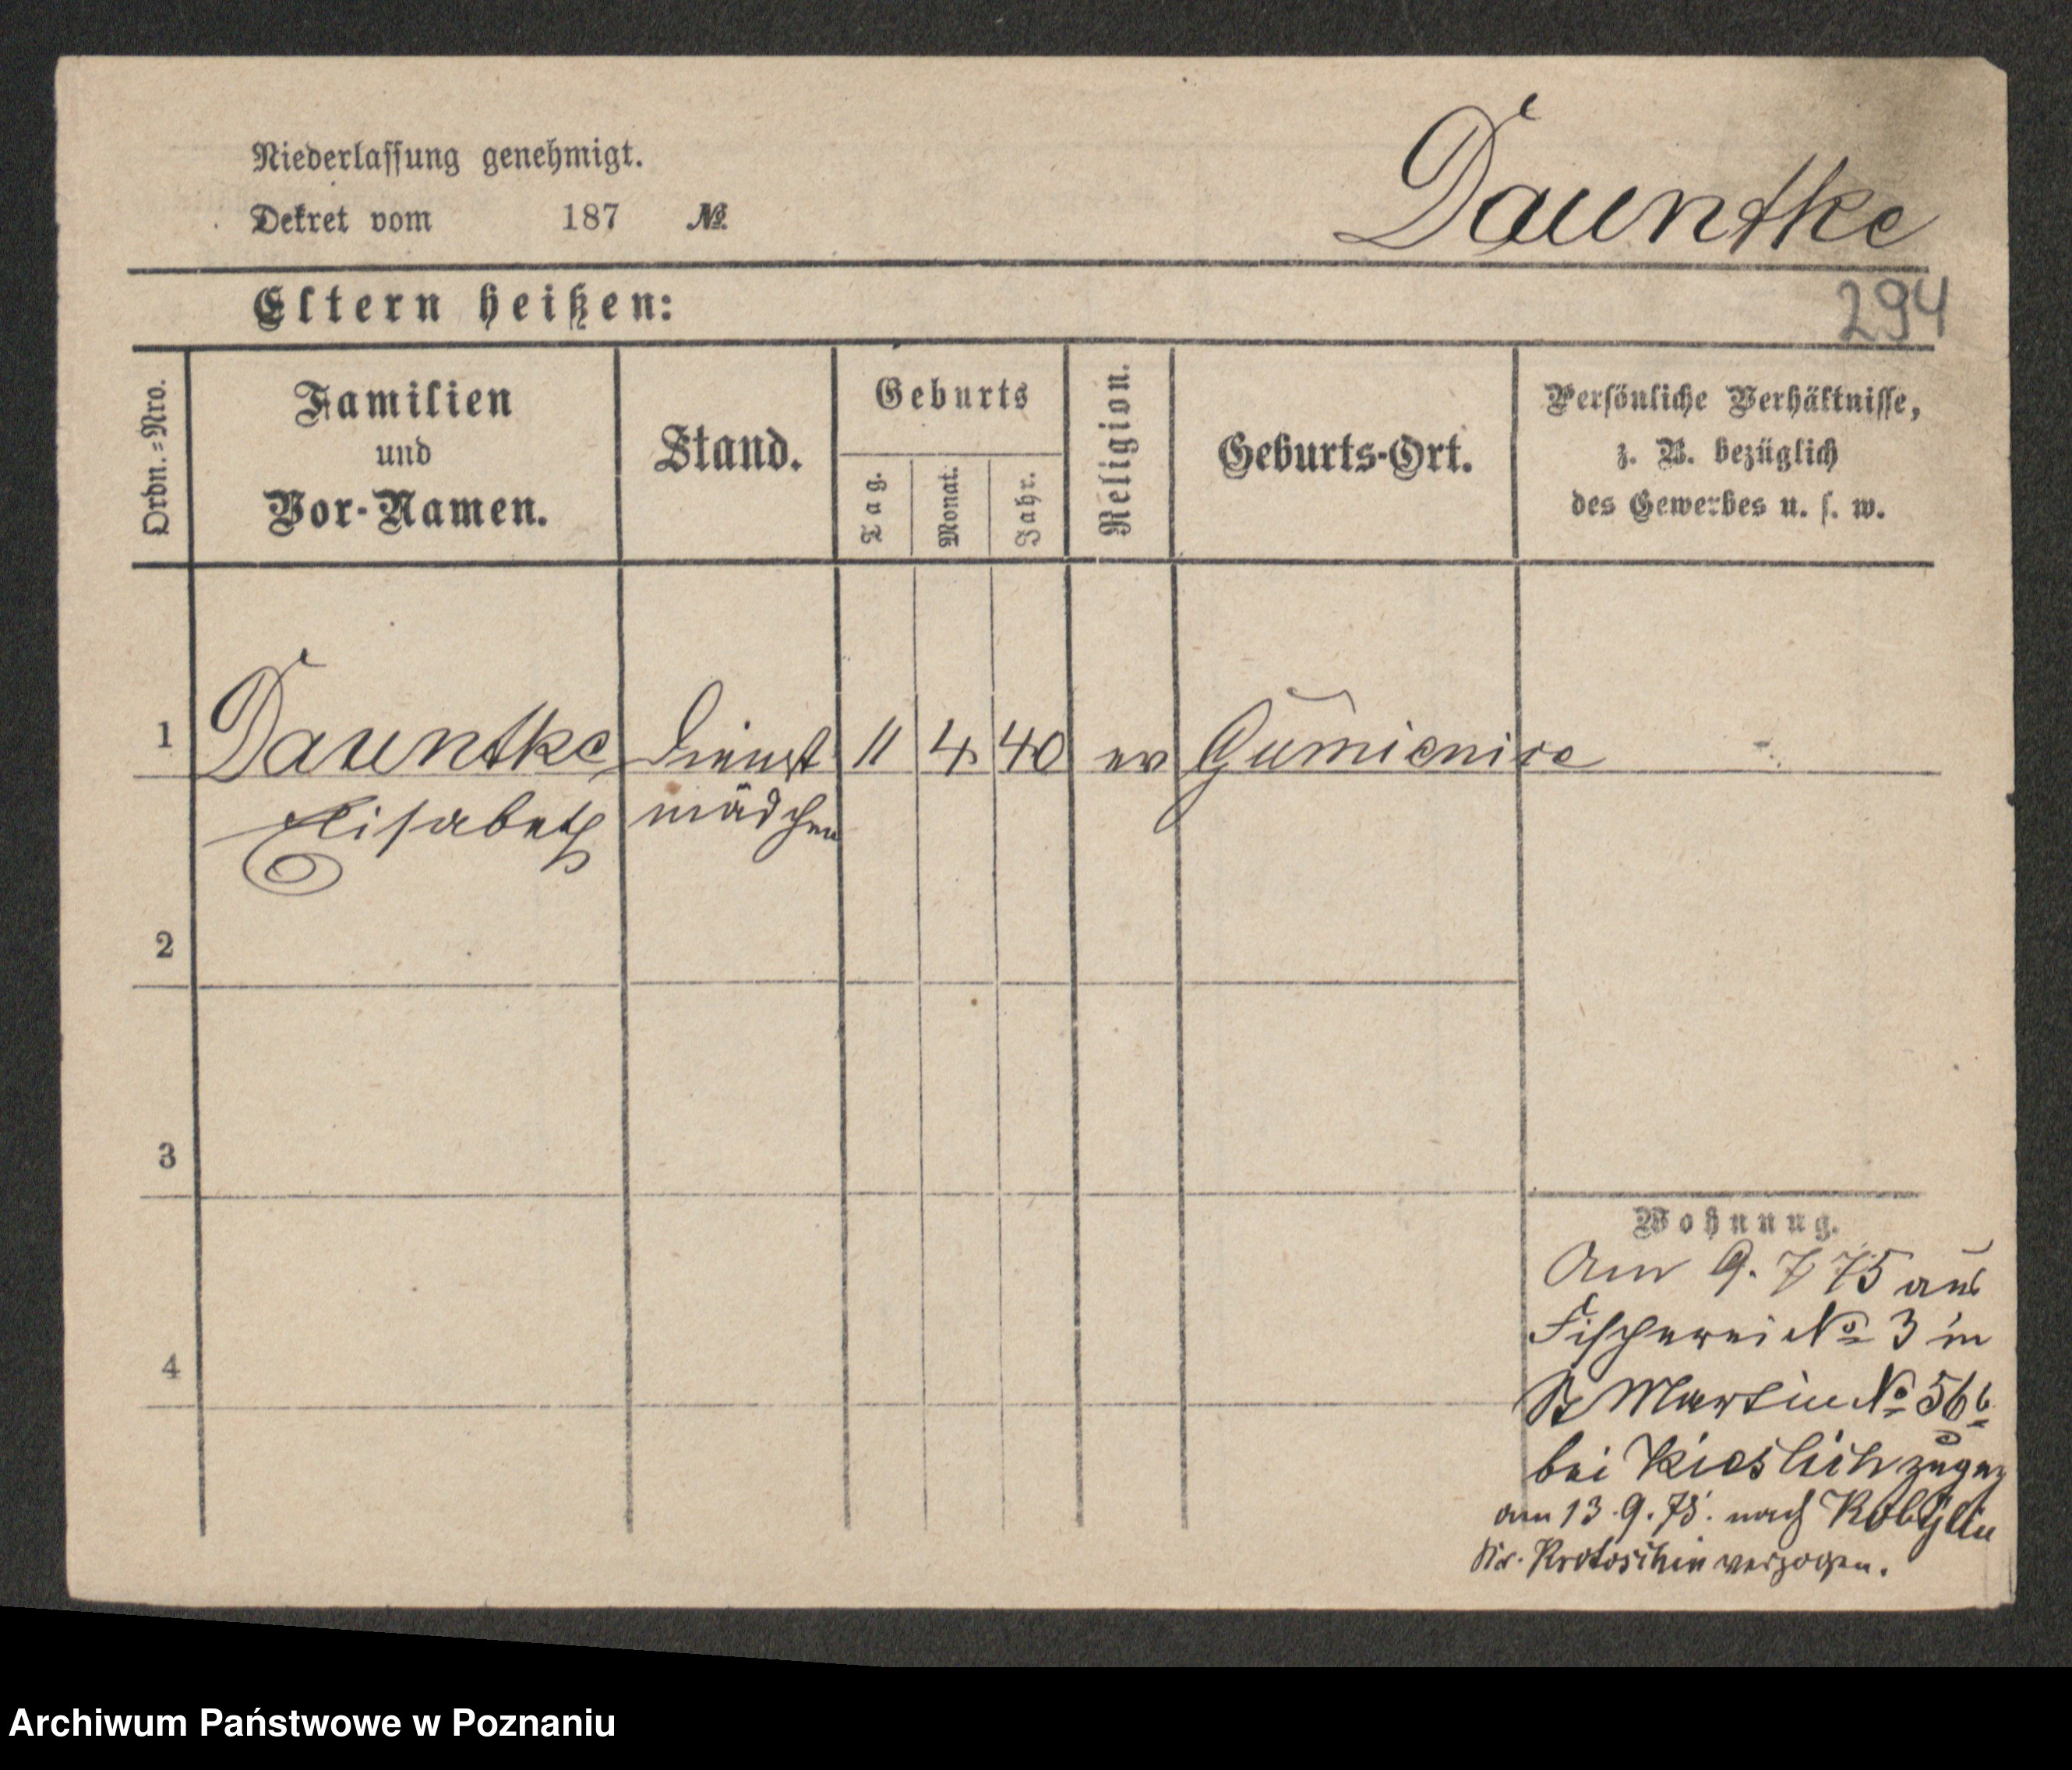 Niederlassung genehmigt.
Dekret vom 187 №
Dauntke
294
Eltern heißen:
Ordn.=Nro.
Familien
und
Vor-Namen.
Stand.
Geburts
Tag.
Monat.
Jahr.
Religion.
Geburts-Ort.
Persönliche Verhältnisse,
z. B. bezüglich
des Gewerbes u. s. w.
1 Dauntke Dienst 11 4 40 ev Gumienice
Elisabeth mädchen
2
3
4
Wohnung.
Am 9. 7 75 aus
Fischerei No 3 in
St Martin No 56 b
bei Kieslich zugez
am 13.9.75. nach Kobylin
Kr. Krotoschin verzogen.
Archiwum Państwowe w Poznaniu